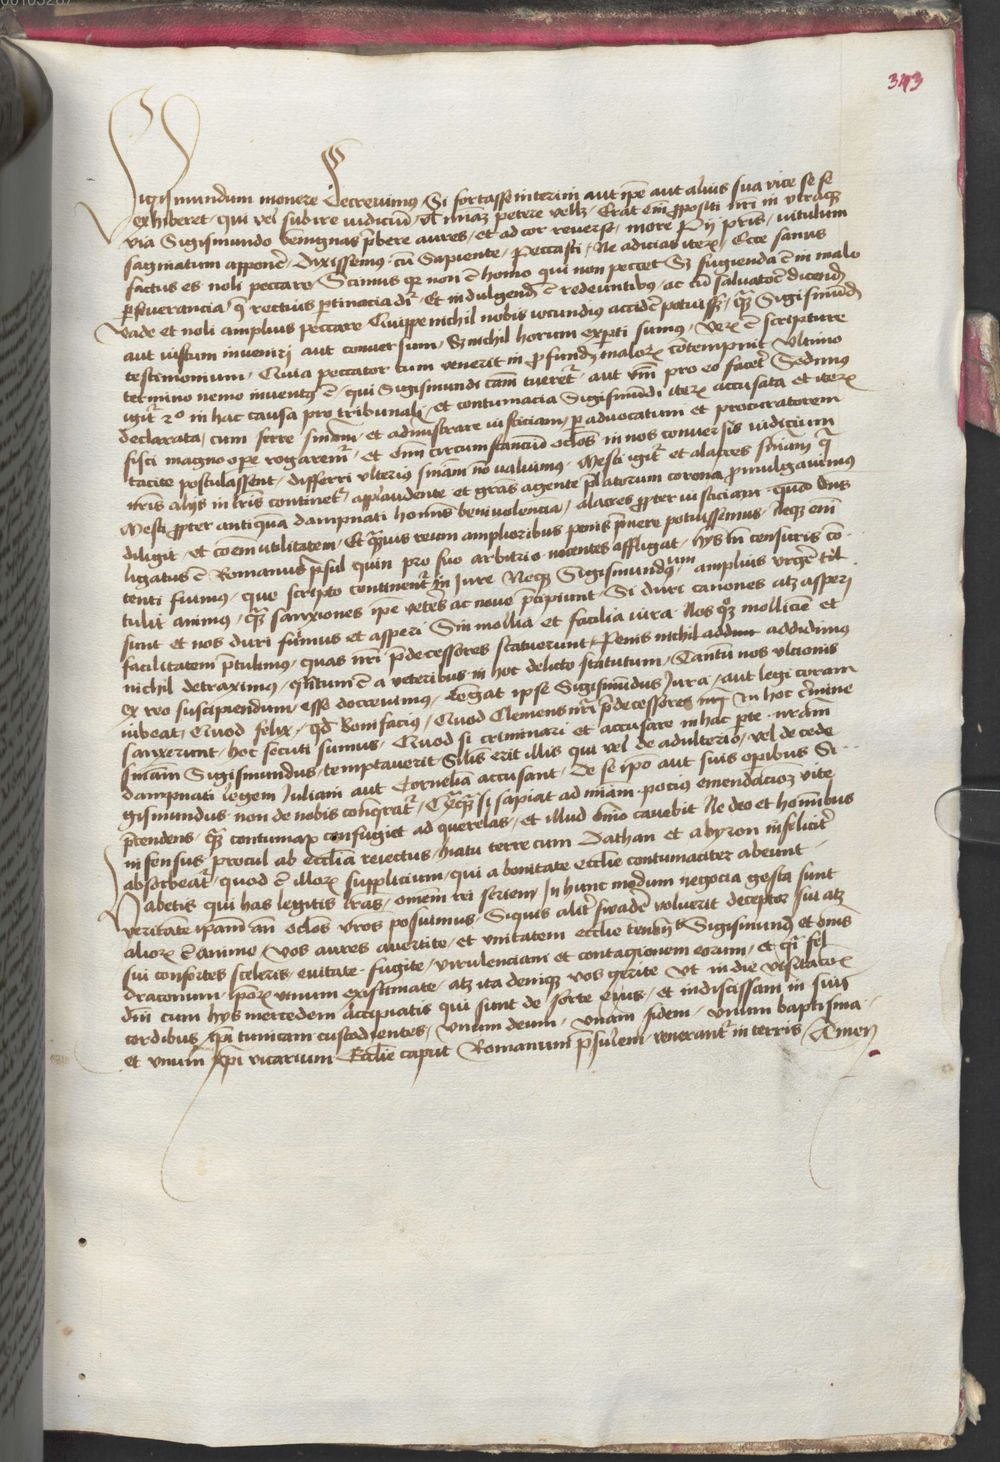 343
Sigismundum monere Decrevimus / Si fortasse interim aut ip̄e aut alius sua vice se se
exhiberet / qui vel subire iudiciū / vel
via Sigismundo benignas p̄bere aures / et ad cor reverso / more Pij pr̄is / vitulum
saginatum apponer̄ / Dixissemus cū Sapiente / Peccasti / Ne adicias iterū / Ecce sanus
factus es noli peccare / Scimus qz non ē homo qui non peccet Sz fugienda ē in malo
p̄severancia / q̄ rectius p̄tinacia dr̄ / Et indulgend̄ ē redeuntibus / ac cū salvatore dicend̄
Vade et noli amplius peccare Quippe nichil nobis iocundius acciden̄ potuiss̄ / q̄z Sigismund̄
aut iustum inveniri aut conversum / Sz nichil horum exp̄ti sumus / Verū ē scripture
testimonium / Quia peccator cum venerit in profund̄ malorū contempnit Ultimo
termino nemo inventus ē / qui Sigismundi cām tueret̄ / aut v̄m pro eo facer̄ Sedimus
igit̄ 2o in hac causa pro tribunali / et contumacia Sigismundi iterū accusata et iterū
declarata / cum ferre sn̄iam / et administrare iusticiam / p̄ advocatum et procuratorem
fisci magno ope rogarem̄ / et om̄i circumstanciū oclōs in nos conversis iudicium
tacite postulassent / differri ulterius sn̄iam nō valuimus / Mesti igit̄ et alacres sn̄iam q̄
nr̄is alijs in lr̄is continet̄ / applaudente et grās agente p̄latorum corona promulgavimus
Mesti p̄pter antiqua dampnati hominis benivolenciā / alacres p̄pter iusticiam quā dn̄s
diligit / et cōem utilitatem / Et q̄zuis reum amplioribus penis p̄mere potuissemus / Neqz eni
ligatus ē Romanus p̄sul quin pro suo arbitrio nocentes affligat / hijs tn̄ censuris con
tenti fuimus / que scripto continent̄ in Jure Neqz Sigismundum amplius urgēr tu
lit animus / q̄z sanxiones ip̄e veteres ac nove p̄cipiunt / Si duri canones atz asperi
sunt et nos duri fuimus et asperi Sin mollia et facilia iura / Nos qz molliciē et
facilitatem p̄tulimus / quas nr̄i p̄decessores statuerunt / Penis nichil addidimus
nichil detraximus / q̄ntum ē a veteribus in hoc delicto statutum / Tantū nos ulcionis
ex reo suscipiendum / esse docrevimus / Legat ipse Sigismūdus Jura / aut legi coram
iubeat / Quod felix / q̄d Bonifacius / Quod Clemens nr̄i p̄decessores in hoc c̄mine
sanxerunt / hoc secuti sumus / Quod si criminari et accusare in hac p̄te nr̄am
sn̄iam Sigismundus / temptaverit Silis erit illis qui vel de adulterio / vel de cede
dampnati legem Juliam aut Corneliā accusant / De se ip̄o aut suis op̄ibus Si
gismundus non de nobis conq̄rat̄ / si sapiat ad
p̄tendens / q̄z contumax confugiet ad querelas / et illud om̄o cavebit Ne deo et hominibus
infensus / procul ab eccliā reiectus / hiatu terre cum Dathan et abyron infelicit̄
absorbeat̄ / quod ē illorū supplicium / qui a bonitate ecclie contumaciter abeunt
Habetis qui has legitis lr̄as / omēm rei seriem / In hunc modum negocia gesta sunt
veritatē ip̄am an̄ oclōs vr̄os posuimus / Siquis alit̄ suadēr voluerit deceptor sui atz
aliorū ē animo / Vos aures avertite / et unitatem ecclie Sigismund̄ et om̄s
sui consortes sceleris / evitate / fugite / virulenciam et contagionem eorum / et q̄si fel
draconum / ip̄orū vinum existimate / atz ita deniqz vos gerite Ut in die
dn̄i cum hijs mercedem accipiatis qui sunt de sorte eius / et indiscissam in suis
cordibus xp̄i tunicam custodientes / Unum deum / Unam fidem / Unum baptisma
et unum xp̄i vicarium Ecclie caput Romanum p̄sulem venerant̄ in terris / Amen